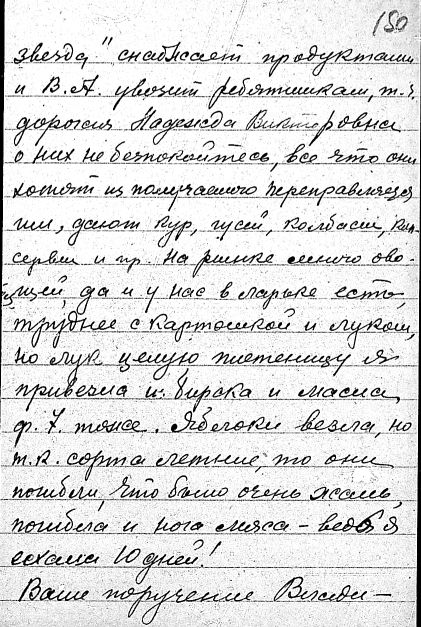 150
звезда" снабжает продуктами
и В.А. увозит ребятишкам, т.ч.
дорогая Надежда Викторовна
о них не безпокойтесь, все что они
хотят из получаемого переправляется
им, дают кур, гусей, колбасы, кон-
сервы и пр. На рынке много ово-
щей, да и у нас в ларьке есть,
труднее с картошкой и луком,
но лук целую плетеницу я
привезла из Бирска и масла
ф. 7. тоже. Яблоки везла, но
т.к. сорта летние, то они
погибли, что было очень жаль,
погибла и нога мяса – ведь я
ехала 10 дней!
Ваше поручение Влади–